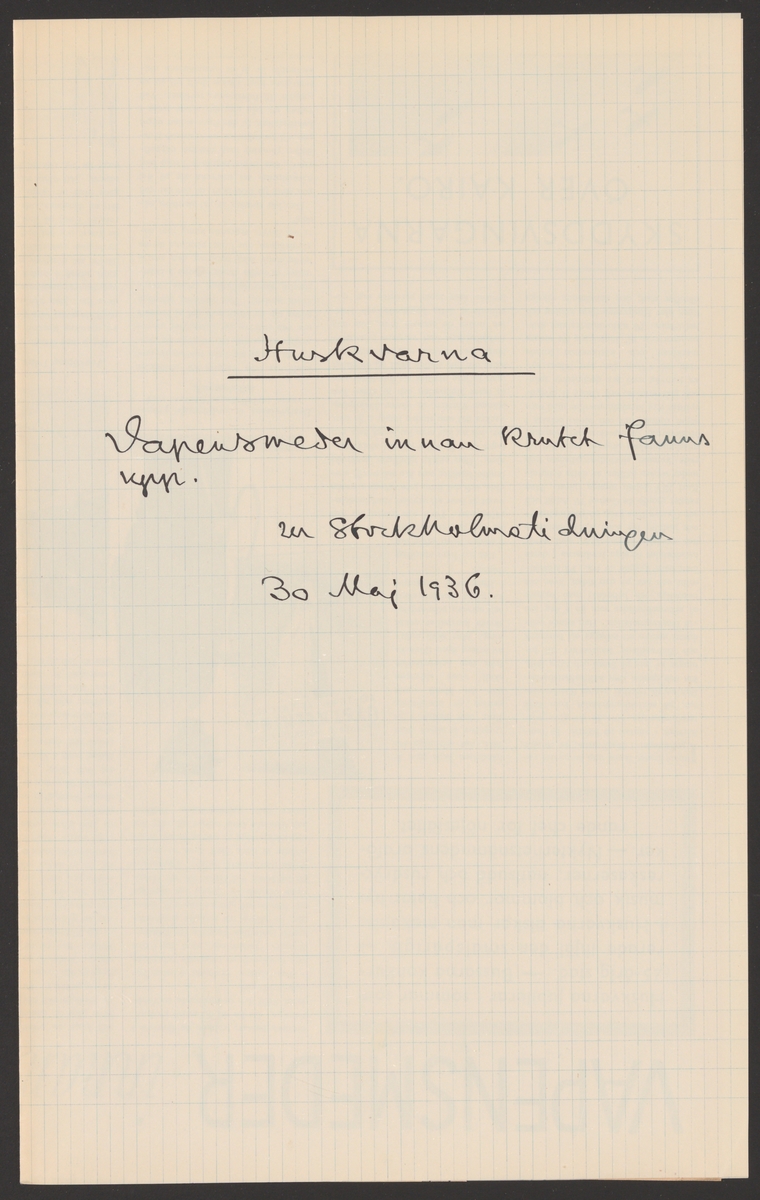 Huskvarna
Vapensmeder innan krutet fanns
upp.
ur Stockholmstidningen
30 Maj 1936.